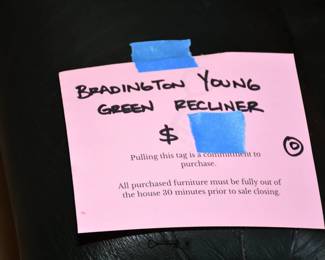 BRADINGTON YOUNG
GREEN RECLINER
$
Pulling this tag is a commitment to
purchase.
All purchased furniture must be fully out of
the house 30 minutes prior to sale closing.